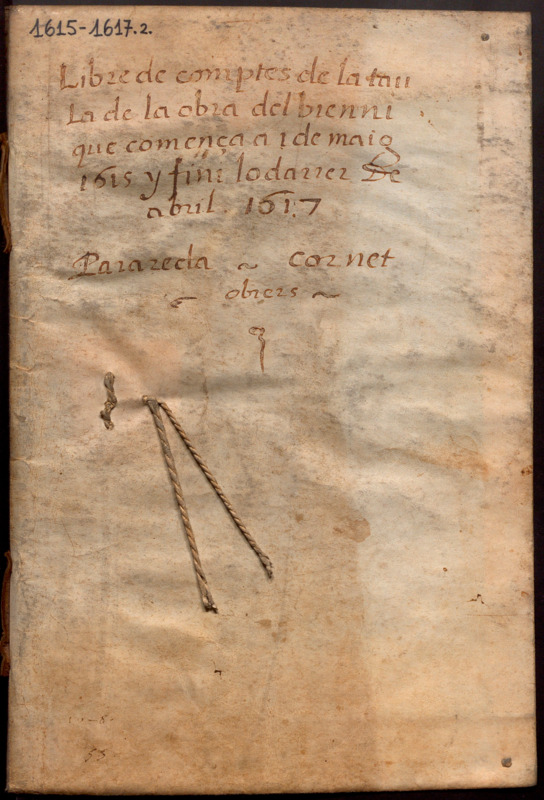 1615-1617.2.
Libre de comptes de la tau
la de la obra del bienni
que comença a 1 de maig
1615 y finí lo darrer de
abril. 1617
Parareda ~ Cornet
~ obrers ~